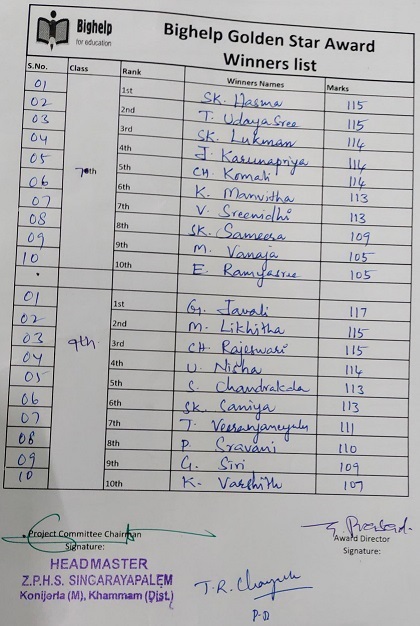 Bighelp
for education
Bighelp Golden Star Award
Winners list
S.No. Class Rank Winners Names Marks
01 1st SK. Hasma 115
02 2nd T. Udaya Sree 115
03 3rd SK. Lukman 114
04 4th J. Karunapriya 114
05 5th CH. Komali 114
06 7th 6th K. Manvitha 113
07 7th V. Sreenidhi 113
08 8th SK. Sameera 109
09 9th M. Vanaja 105
10 10th E. Ramyasree 105
01 1st G. Javali 117
02 2nd M. Likhitha 115
03 9th 3rd CH. Rajeswari 115
04 4th U. Nisha 114
05 5th S. Chandrakala 113
06 6th SK. Saniya 113
07 7th T. Veeranjaneyulu 111
08 8th P. Sravani 110
09 9th G. Siri 109
10 10th K. Varshith 107
Project Committee Chairman
Signature:
Award Director
Signature:
HEADMASTER
Z.P.H.S. SINGARAYAPALEM
Konijerla (M), Khammam (Dist.)
T.R.
P.D